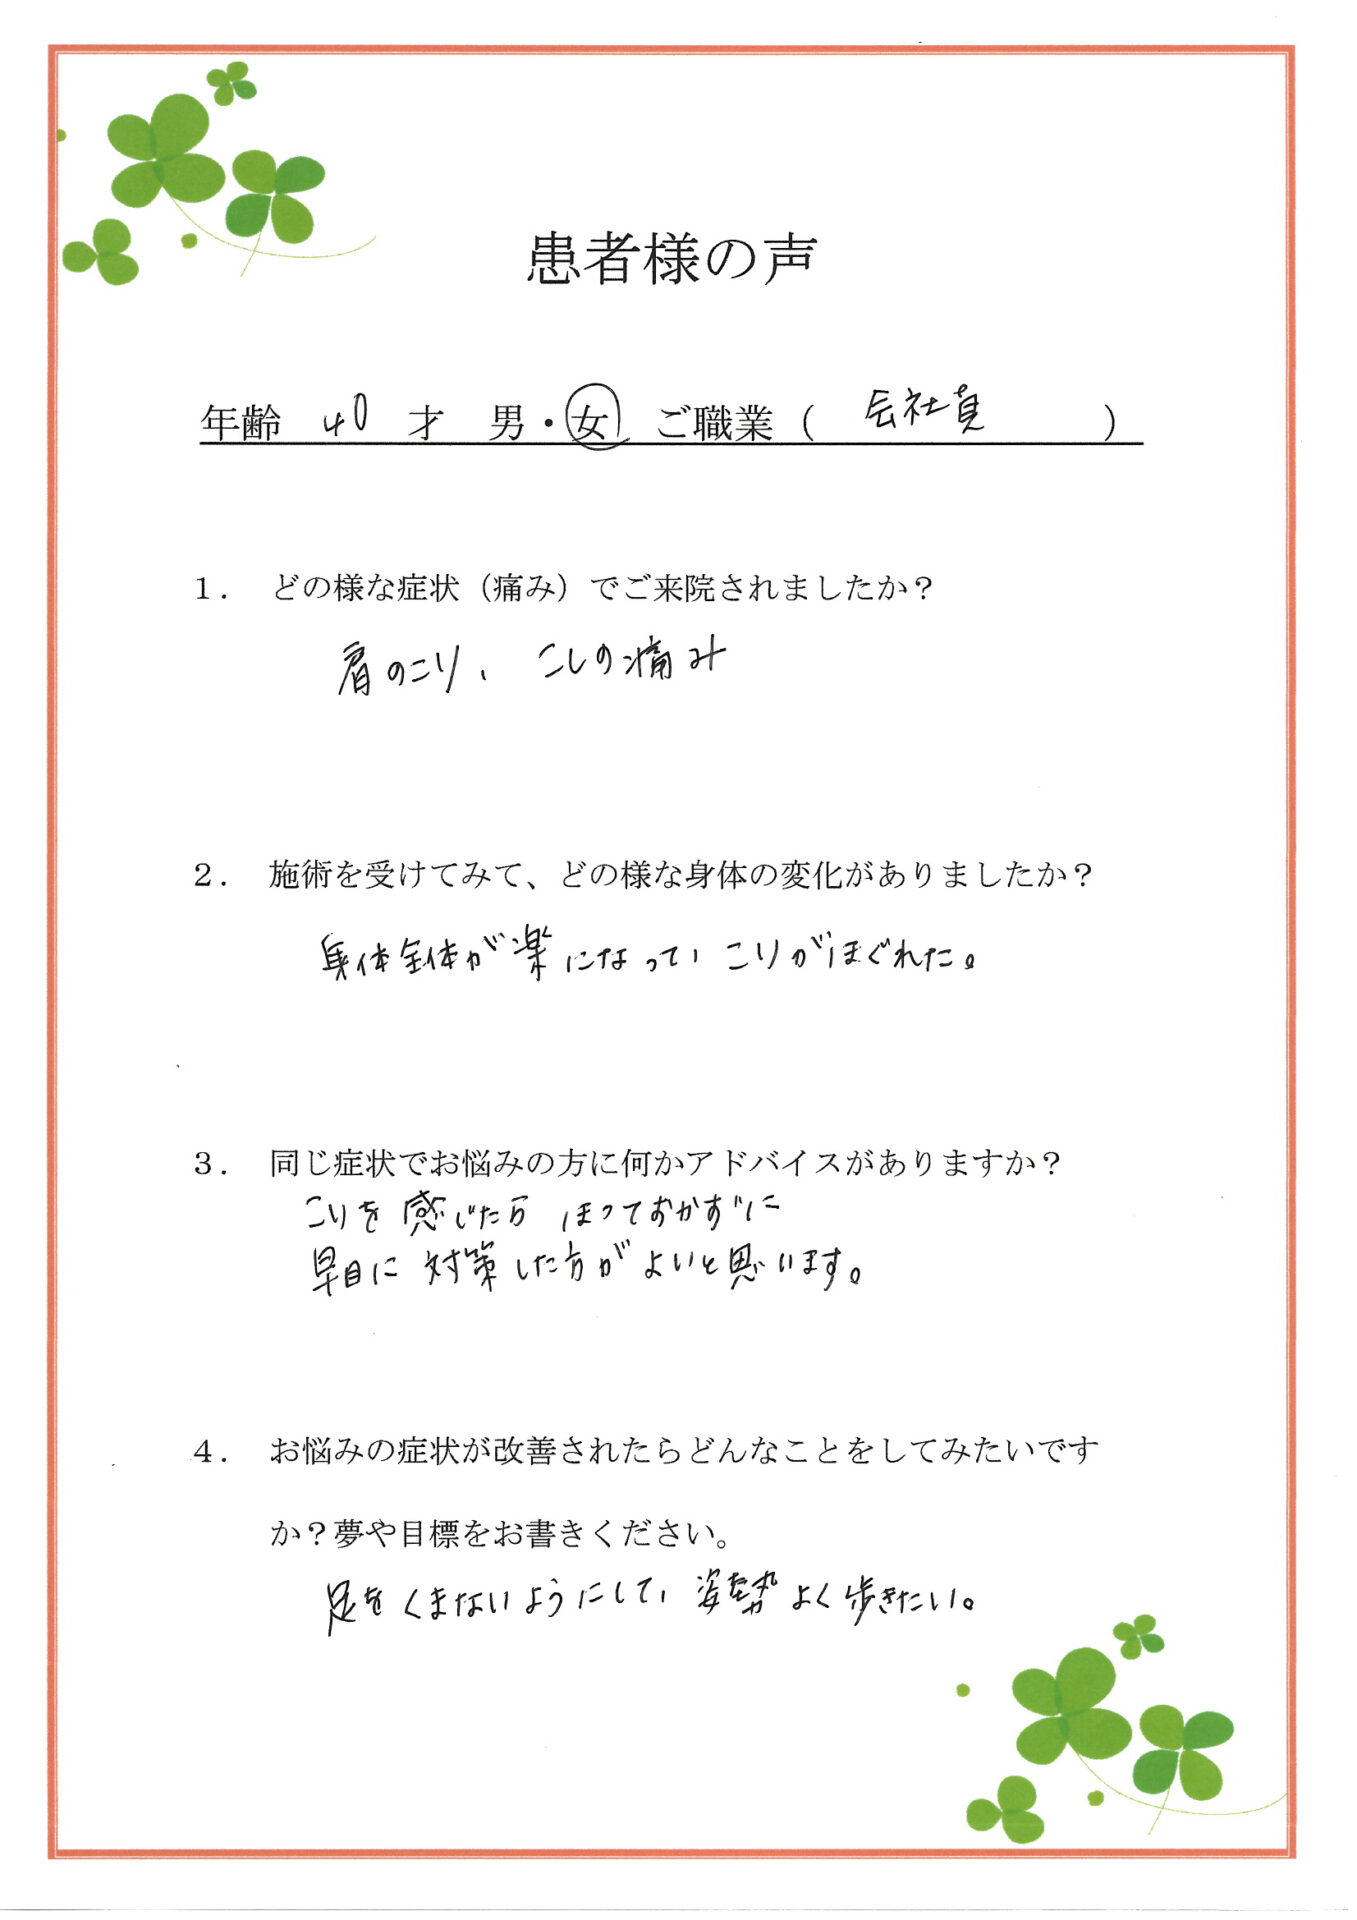 患者様の声
年齢 40 才 男・女 ご職業（ 会社員 ）
１． どの様な症状（痛み）でご来院されましたか？
肩のこり、こしの痛み
２． 施術を受けてみて、どの様な身体の変化がありましたか？
身体全体が楽になって、こりがほぐれた。
３． 同じ症状でお悩みの方に何かアドバイスがありますか？
こりを感じたら ほっておかずに
早目に対策した方がよいと思います。
４． お悩みの症状が改善されたらどんなことをしてみたいです
か？夢や目標をお書きください。
足をくまないようにして、姿勢よく歩きたい。